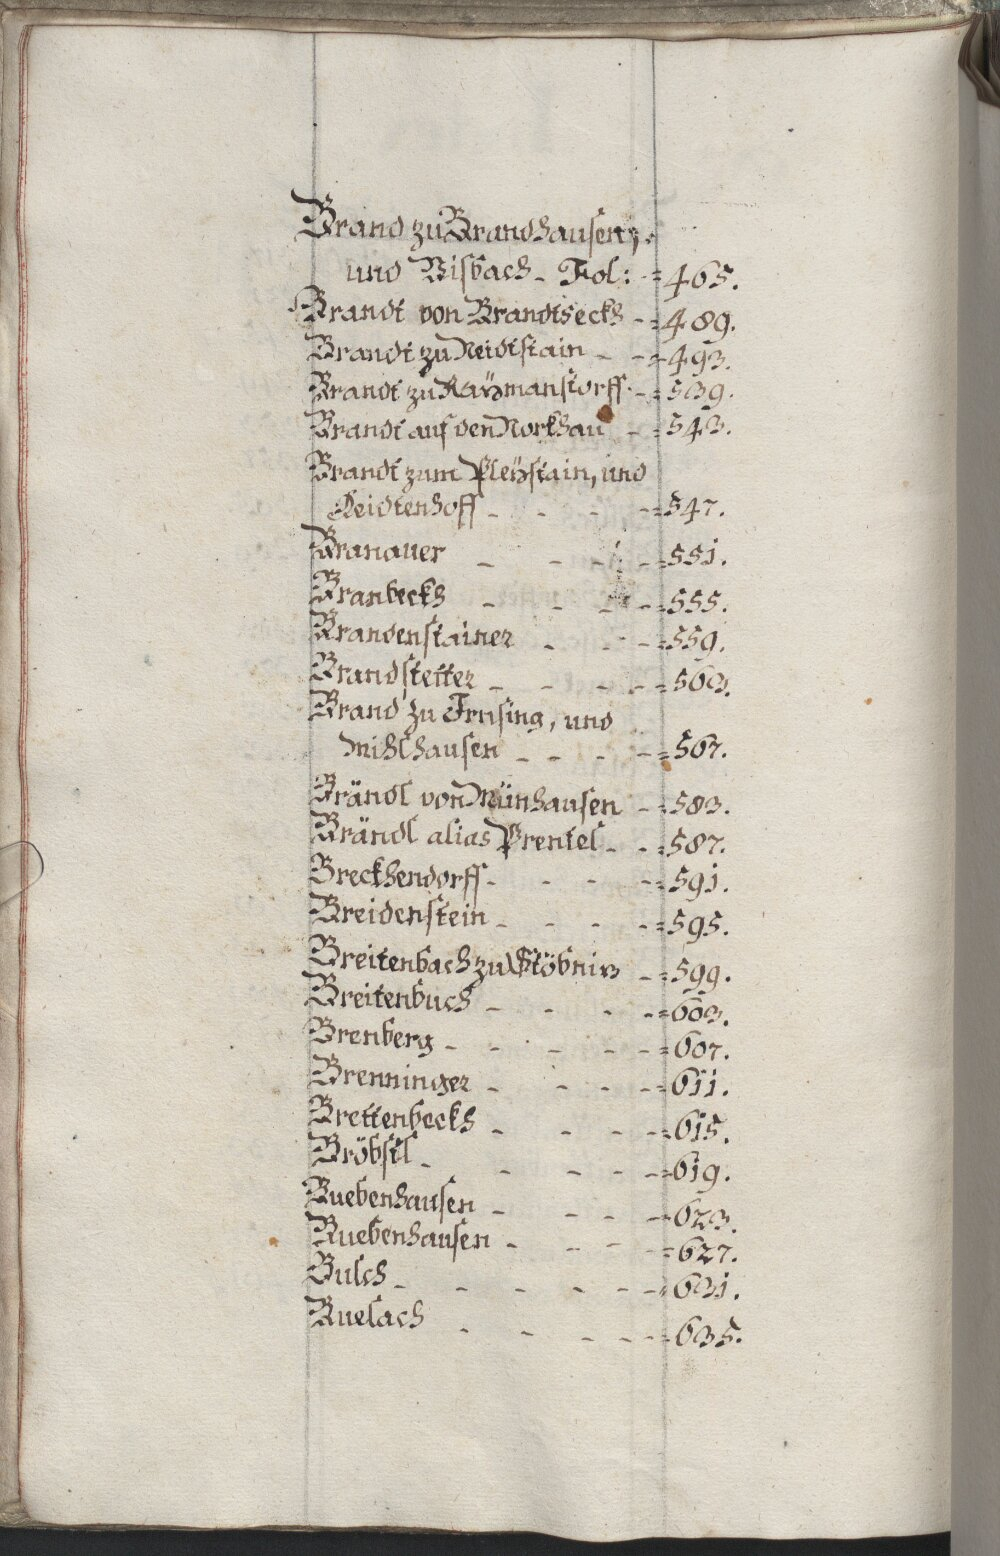 Brand zu Brandhausen,
und Nisbach - Fol: = 465.
Brandt von Brandtseckh - = 489.
Brandt zu Neidtstain - - = 493.
Brandt zu Raÿmanstorff - = 539.
Brandt auf den Norkhau - = 543.
Brandt zum Pleÿstain, und
Leidtenhoff - - - - = 547.
Branauer - - - - = 551.
Branbeckh - - - - = 555.
Brandenstainer - - - = 559.
Brandstetter - - - - = 563.
Brand zu Irnsing, und
Mihlhausen - - - - = 567.
Brändl von Münhausen - = 583.
Brändl alias Prentel - - = 587.
Breckhendorff - - - - = 591.
Breidenstein - - - - = 595.
Breitenbach zu Stöbniz - = 599.
Breitenbuch - - - - = 603.
Brenberg - - - - - = 607.
Brenninger - - - - = 611.
Brettenbeckh - - - - = 615.
Bröbstl - - - - - = 619.
Buebenhausen - - - - 623.
Buebenhausen - - - = 627.
Bulch - - - - - - = 631.
Buelach - - - - - = 635.